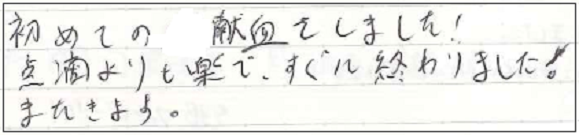 初めての 献血をしました!
点滴よりも楽で、すぐに終わりました!
またきます。